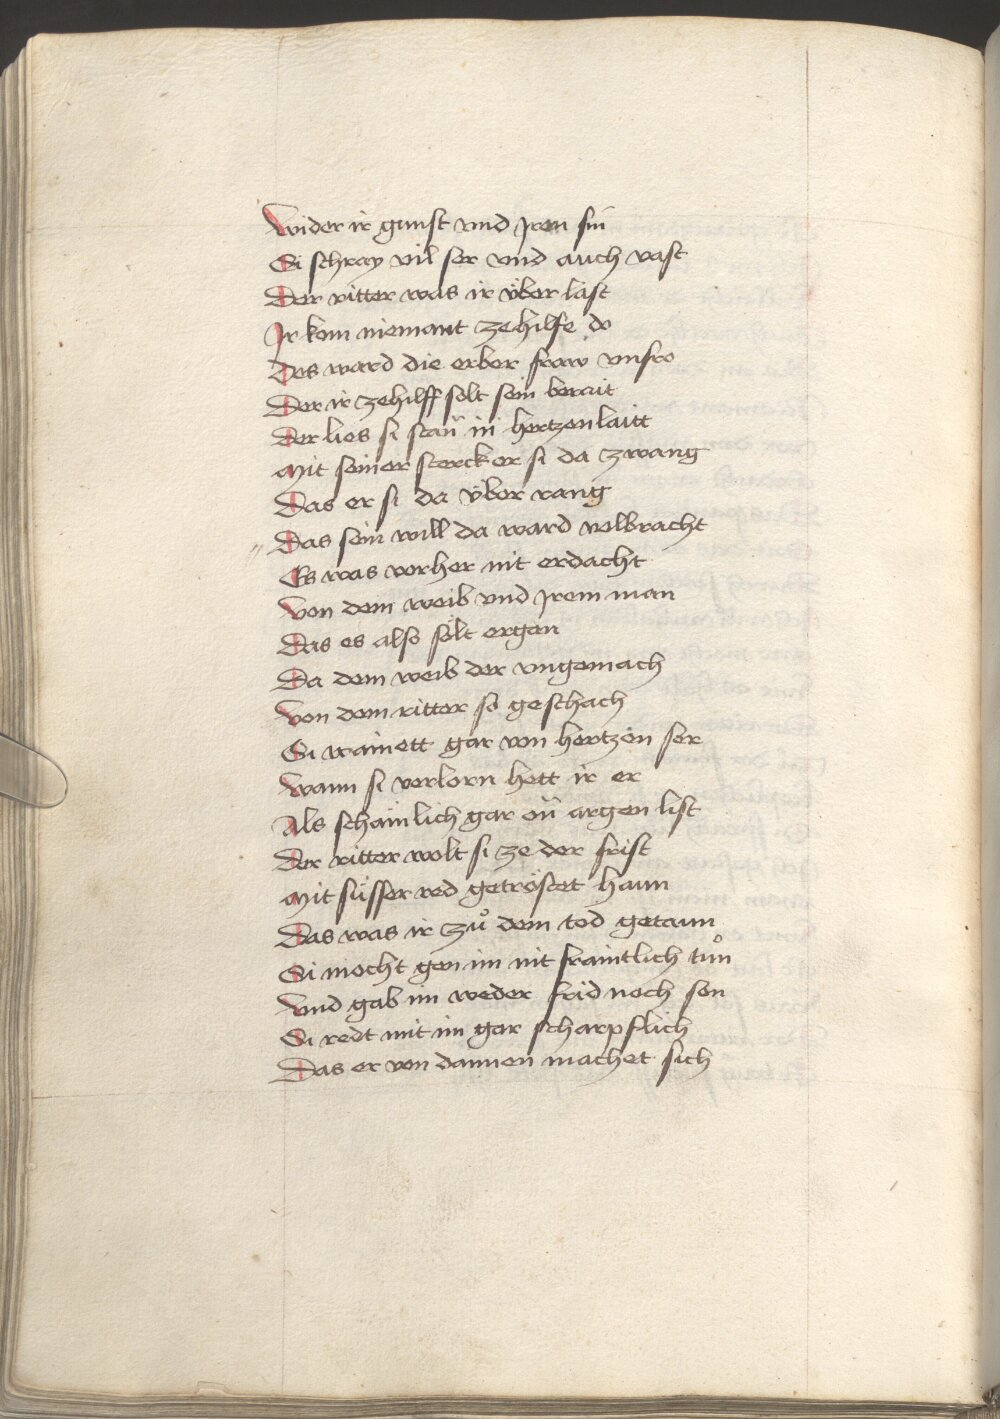 Wider ir gunst vnd Jren sin
Si schray vil ser vnd auch vast
Der ritter was ir über last
Jr kom niemant ze hilfe do
Des ward die erber fraw vnfro
Der ir ze hilff solt sein berait
Der lies si stan̄ in hertzenlaitt
Mit seiner sterck er si da zwang
Das er si da über rang
Das sein will da ward volbracht
Es was vorher nit erdacht
Von dem weib vnd Jrem man
Das es also sölt ergan
Da dem weib der vngemach
Von dem ritter so geschach
Si wainett gar von hertzen ser
Wann si verlorn hett ir er
Als schämlich gar on̄ argen list
Der ritter wolt si ze der frist
Mit süsser red getröstet hann
Das was ir zuͦ dem tod getann
Si mocht gen im nit fraintlich tuͦn
Vnd gab im weder frid noch son
Si redt mit im gar scharpflich
Das er von dannen machet sich